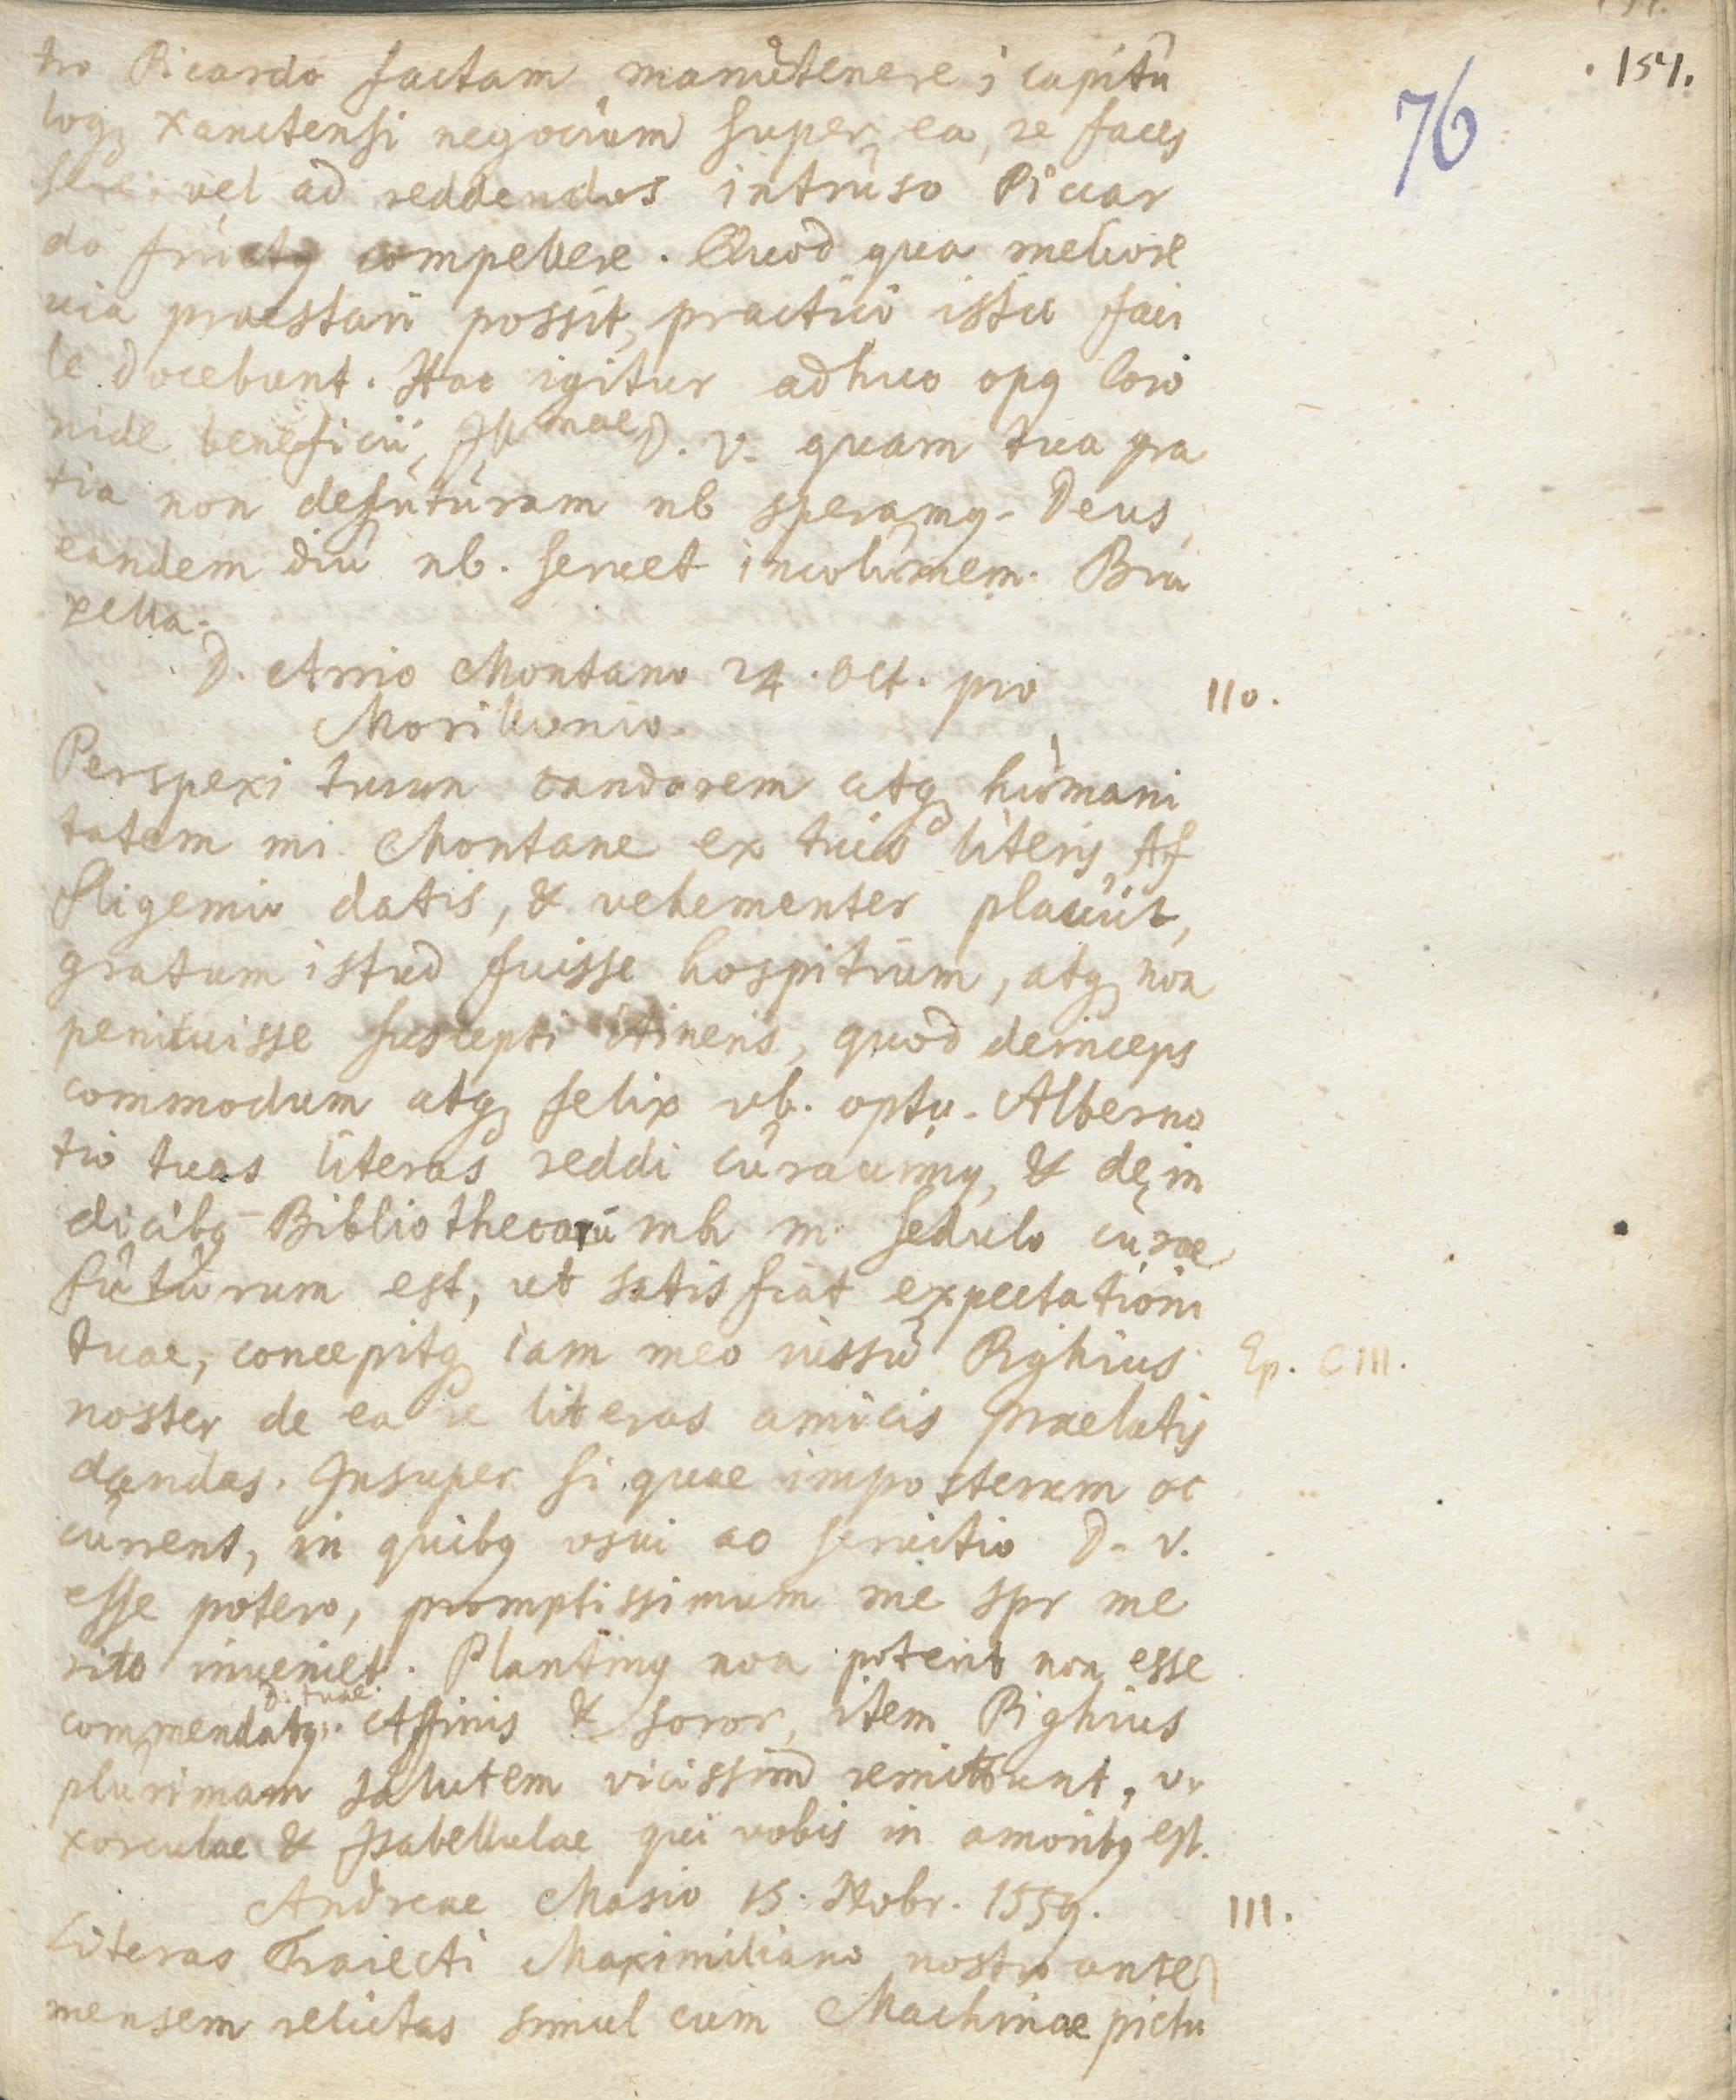 151.
76
tro Ricardo factam manutenere, capitu
loq3 Xanctensi negocium super ea re faces
sere, vel ad reddendos intruso Riccar
do fructq compellere. Quod qua meliore
via praestari possit, practici istic faci
le docebunt. Hac igitur adhuc opq coro
nide beneficii, Illmae D. V. quam tua gra
tia non defuturam nb speramq. Deus
eandem diu nb. servet incolumem. Bru
xella.
D. Arrio Montano 24. Oct. pro 110.
Morillonio.
Perspexi tuum candorem atq3 humani
tatem mi Montane ex tuis literis Af
fligemio datis, & vehementer placuit,
gratum istud fuisse hospitium, atq3 non
penituisse suscepti itineris, quod deinceps
commodum atq3 felix vb. opto. Alberno
tio tuas literas reddi curavimq, & de in
dicibq Bibliothecarū mh m. sedulo curae
futurum est, ut satis fiat expectationi
tuae, concepitq3 iam meo iussu Pighius Ep. CIII.
noster de ea re literas amicis praelatis
dandas. Insuper si quae imposterum oc
current, in quibq usui ac servitio D. V.
esse potero, promptissimum me spr me
rito inveniet. Plantinq non poterit non esse
D. tuae.
commendatq. Affinis & soror, item Pighius
plurimam salutem vicissim remittunt, v.
xorculae & Isabellulae qui vobis in amoribq est.
Andreae Masio 15. Nobr. 1559. 111.
Literas Traiecti Maximiliano nostro ante
mensem relictas simul cum Machinae pictu